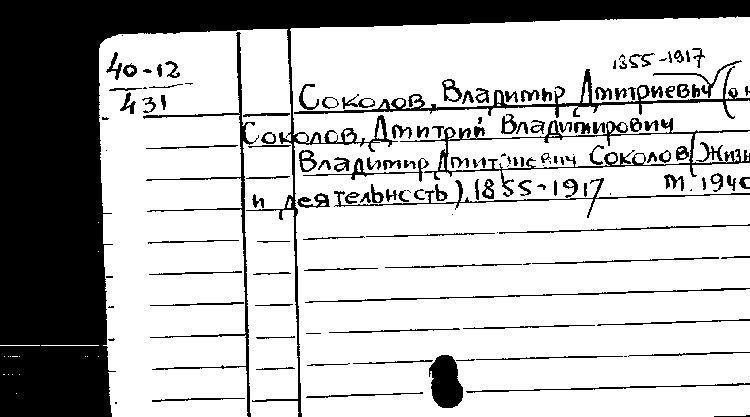 1855-1917
40-12
431
Соколов, Владимир Дмитриевич (о н
Соколов, Дмитрий Владимирович
Владимир Дмитриевич Соколов (Жизн
и деятельность). 1855-1917. М. 1940